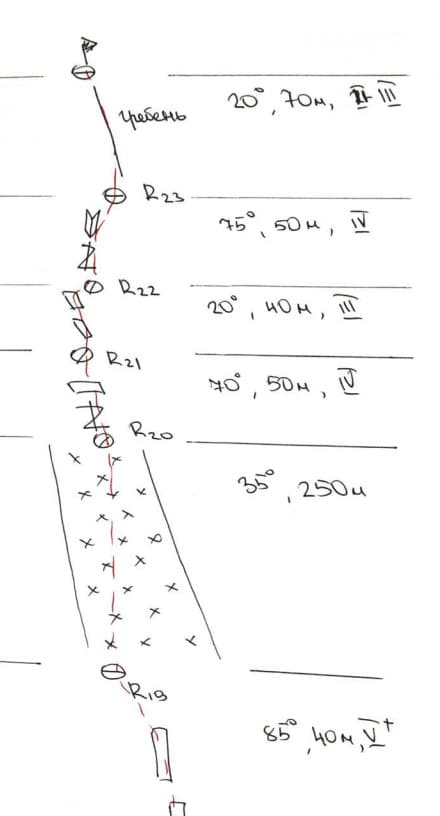 20°, 70м, II-III
гребень
R23
75°, 50м, IV
R22
20°, 40м, III
R21
70°, 50м, IV
R20
35°, 250м
R19
85°, 40м, V+